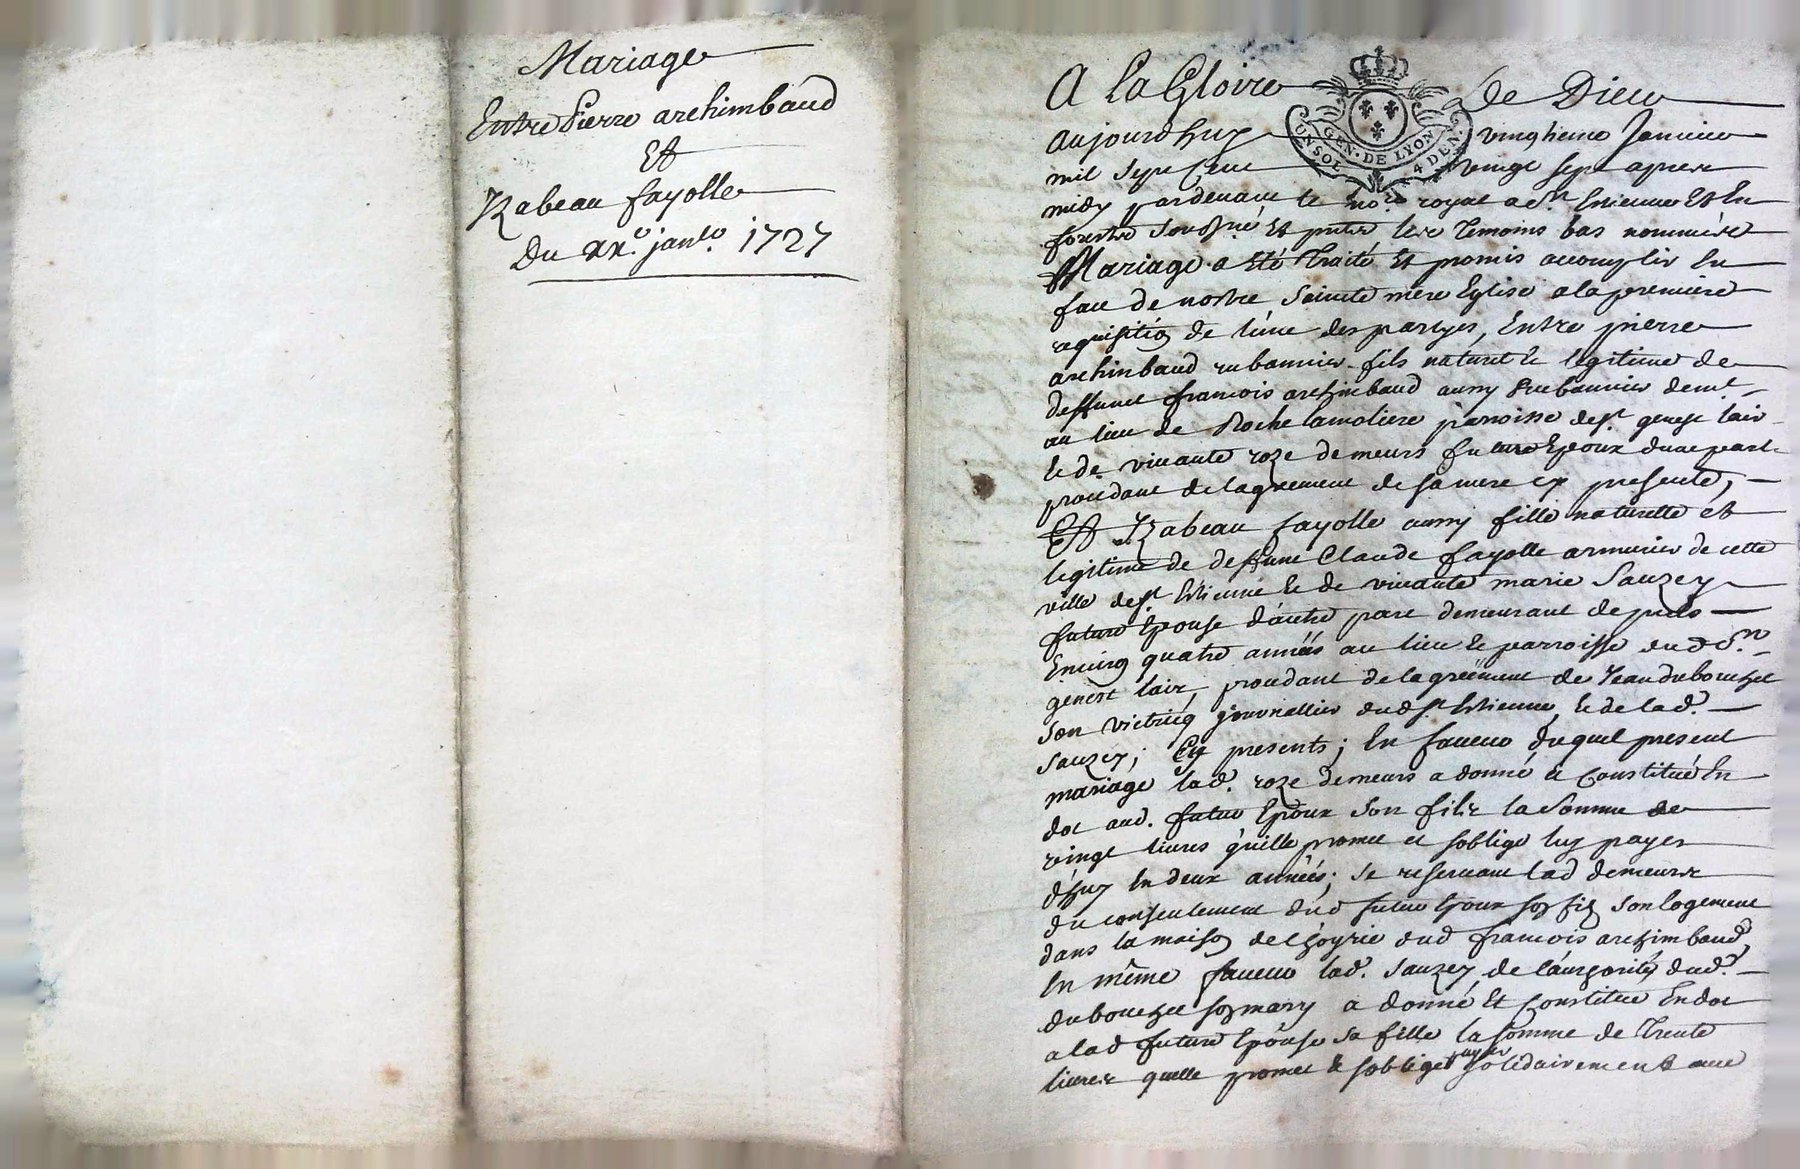 Mariage
Entre Pierre archimbaud
Et
Izabeau fayolle
Du xx.e janv.o 1727
A la Gloire de Dieu
aujourdhuy vingtieme Janvier
GEN. DE LYON
CONSOL 4 DEN.
mil sept Cent vingt sept apres
midy pardevant le no.re royal a St. Estienne Et En
forests Soussiné Et putre les Temoins bas nommées
Mariage a Eté Traité Et promis accomplir En
face de nostre Sainte mere Eglise a la premiere
requisition de l'une des partyes, Entre pierre
archimbaud rubannier fils naturel Et legitime de
deffunct francois archimbaud aussy Rubannier demt.
au lieu de Roche lamoliere parroisse de St. genest lair
Et de vivante roze demeurs futur Epoux dune part
procedant de lagreement de sa mere cy presente,
Et Izabeau fayolle aussy fille naturelle et
legitime de deffunt Claude fayolle armurier de cette
ville de St. Estienne Et de vivante marie Sauzey
future Epouse d'autre part demeurant depuis
Environ quatre annéés au lieu Et parroisse dud St.
genest lair, procedant de lagreement de Jean dubouchet
son vietricq journallier dud St. Estienne, Et de lad.
Sauzey; Cy presents; En faveur duquel present
mariage lad. roze demeurs a donné et Constitué En
dot aud. futur Epoux Son fils la Somme de
vingt livres quille promet et soblige luy payer
d'huy En deux annéés; se reservant lad demeurs
du consentement dud futur Epoux son fils son logement
dans la maison de lhoyrie dud francois archimbaud,
En même faveur lad. Sauzey de lauthorité dud.
dubouchet son mary a donné Et Constitué En dot
a lad future Epouse sa fille la somme de Trente
livres quelle promet & soblige payer solidairement avec